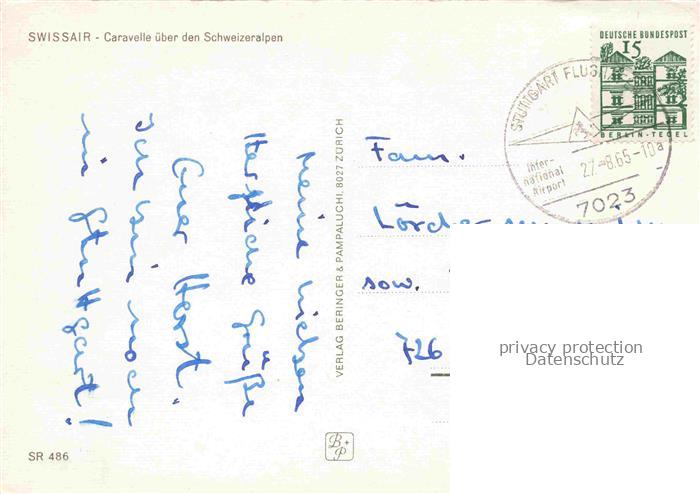 SWISSAIR - Caravelle über den Schweizeralpen
DEUTSCHE BUNDESPOST
15
BERLIN-TEGEL
STUTTGART FLUG
Inter-
national
Airport
27.-8.65-10a
7023
Meine lieben
Herzliche Grüße
Euer Horst.
Ich bin noch
in Stuttgart!
VERLAG BERINGER & PAMPALUCHI. 8027 ZÜRICH
Fam.
sow.
726
privacy protection
Datenschutz
B+P
SR 486